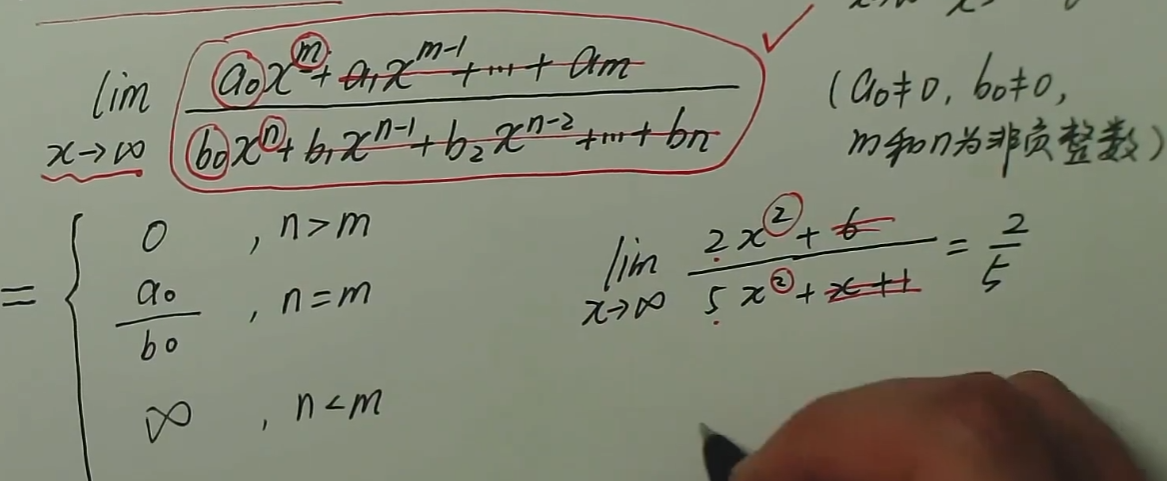 lim x→∞ (a₀xᵐ + a₁xᵐ⁻¹ + ... + aₘ) / (b₀xⁿ + b₁xⁿ⁻¹ + b₂xⁿ⁻² + ... + bₙ)
(a₀≠0, b₀≠0,
m和n为非负整数)
= { 0 , n>m
a₀/b₀ , n=m
∞ , n<m
lim x→∞ (2x² + 6) / (5x² + x + 1) = 2/5